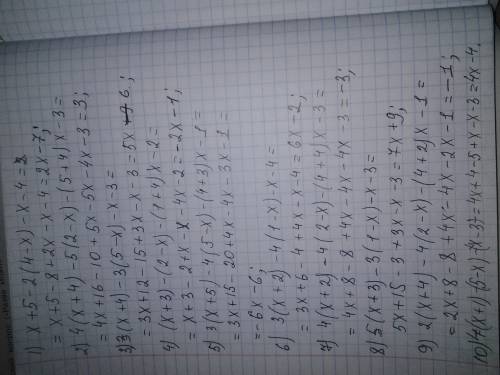 1) x+5-2(4-x)-x-4=
=x+5-8+2x-x-4=2x-7;
2) 4(x+4)-5(2-x)-(5+4)x-3=
4x+16-10+5x-5x-4x-3=3;
3) 3(x+4)-3(5-x)-x-3=
=3x+12-15+3x-x-3=5x-6;
4) (x+3)-(2-x)-(1+4)x-2=
=x+3-2+x-x-4x-2=-2x-1;
5) 3(x+5)-4(5-x)-(4+3)x-1=
3x+15-20+4x-4x-3x-1=
=-6x-6;
6) 3(x+2)-4(1-x)-x-4=
=3x+6-4+4x-x-4=6x-2;
7) 4(x+2)-4(2-x)-(4+4)x-3=
=4x+8-8+4x-4x-4x-3=-3;
8) 5(x+3)-3(1-x)-x-3=
5x+15-3+3x-x-3=7x+9;
9) 2(x+4)-4(2-x)-(4+2)x-1=
=2x+8-8+4x-4x-2x-1=-1;
10) 4(x+1)-(5-x)-(x+3)=4x+4-5+x-x-3=4x-4.